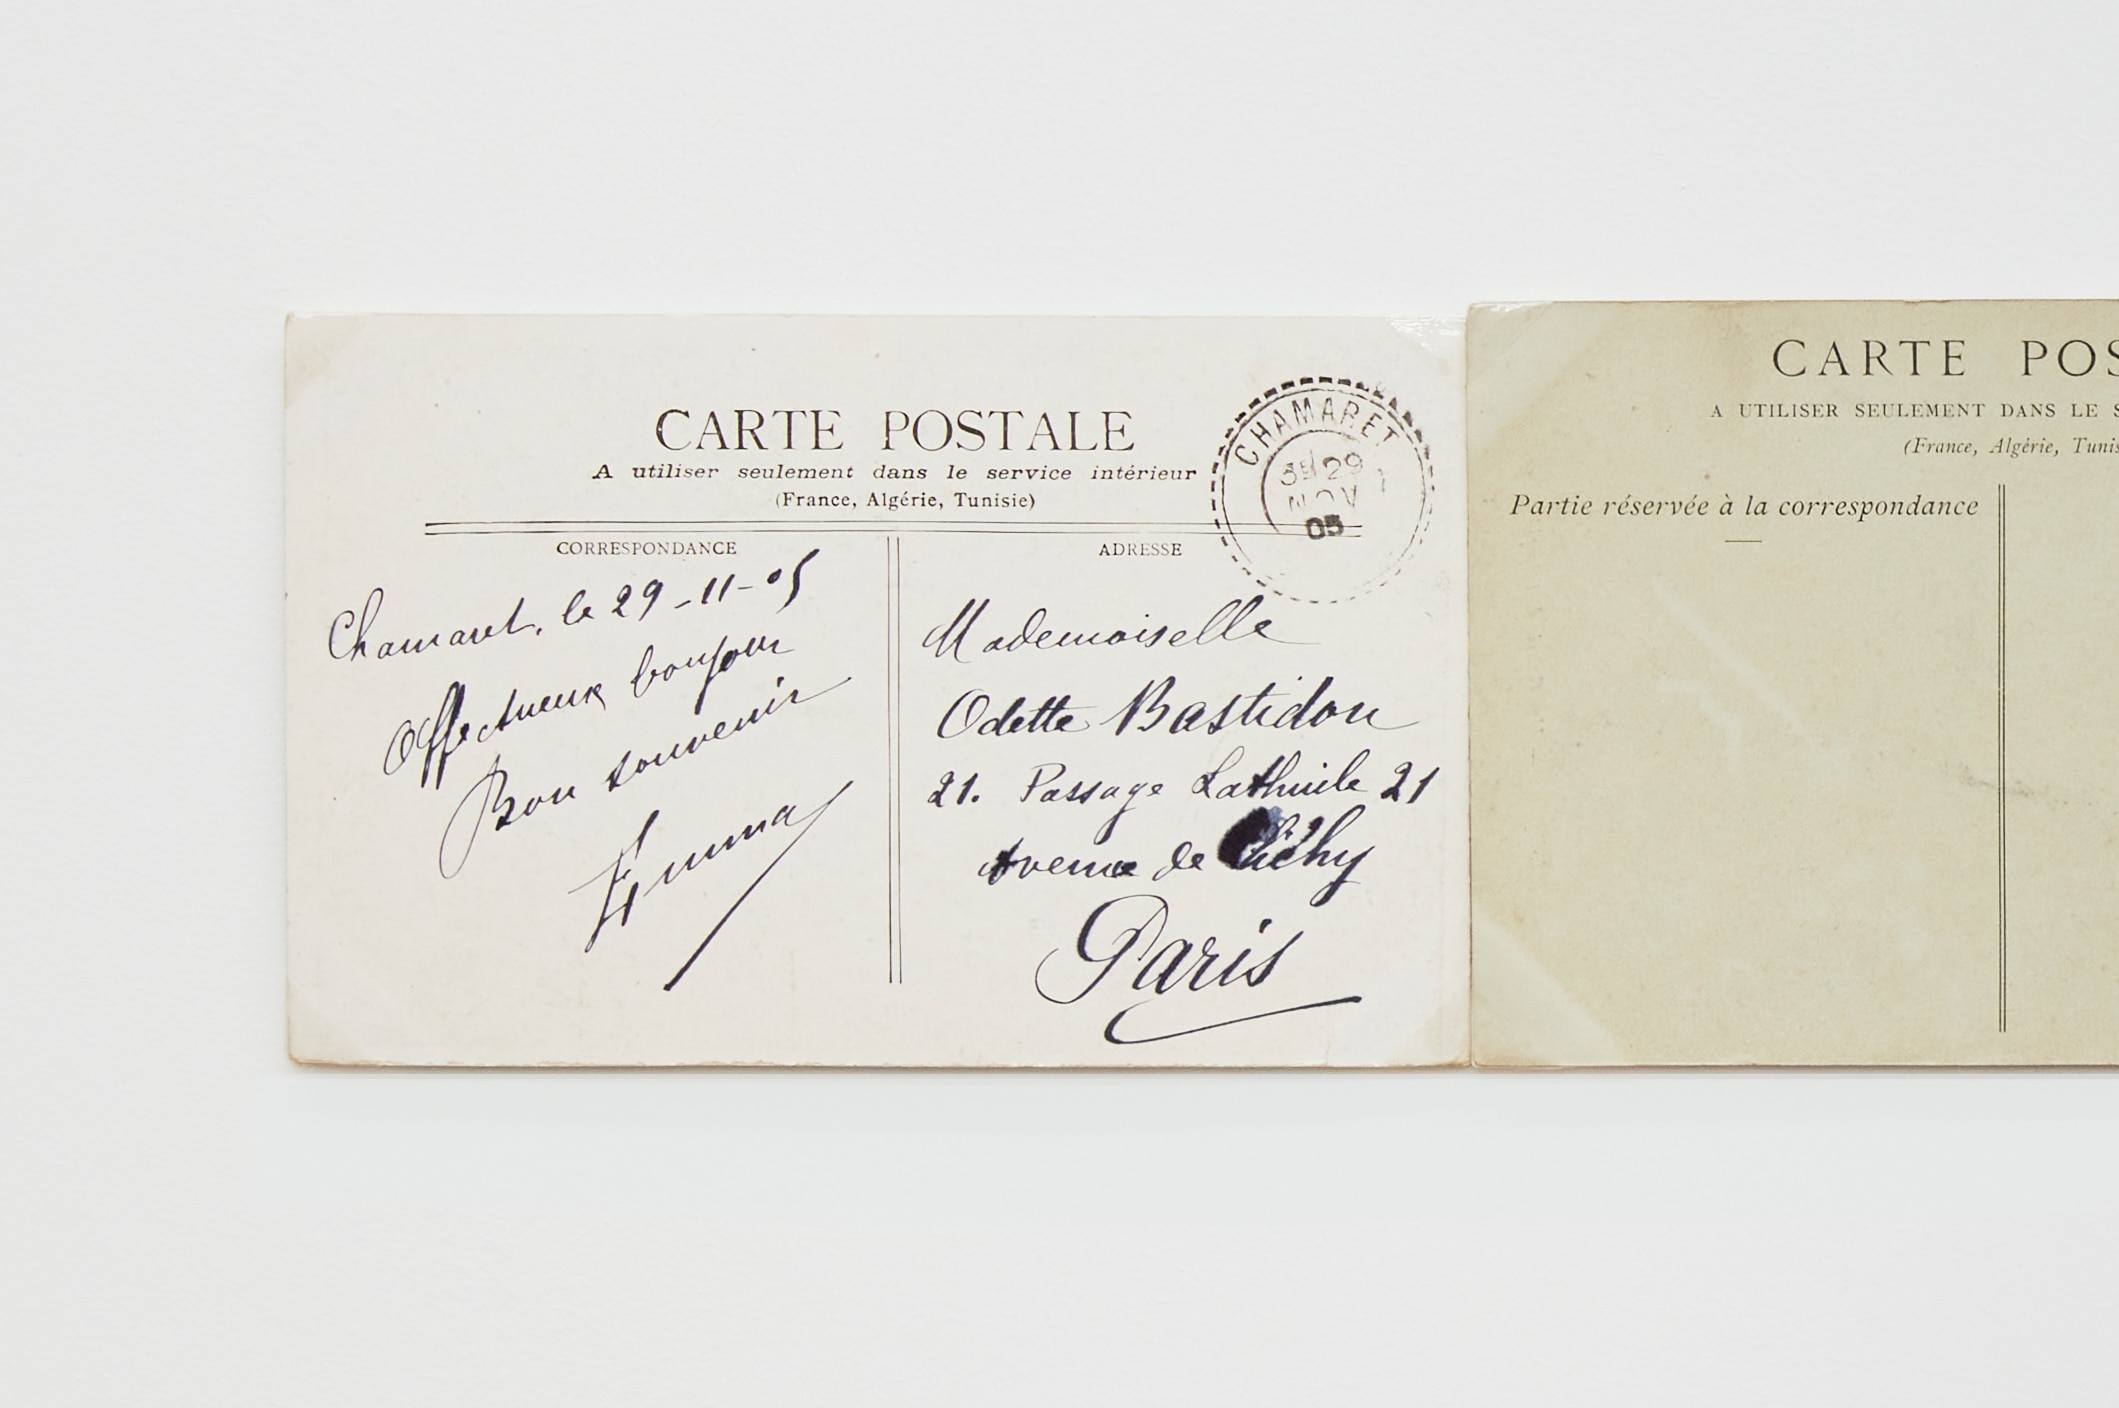 CARTE POSTALE
A utiliser seulement dans le service intérieur
(France, Algérie, Tunisie)
CORRESPONDANCE
Chamaret, le 29-11-05
Affectueux bonjour
Bon souvenir
Emma
CHAMARET
29
NOV
05
ADRESSE
Mademoiselle
Odette Bastidon
21. Passage Lathuile 21
Avenue de Clichy
Paris
CARTE POS
A UTILISER SEULEMENT DANS LE S
(France, Algérie, Tunis
Partie réservée à la correspondance